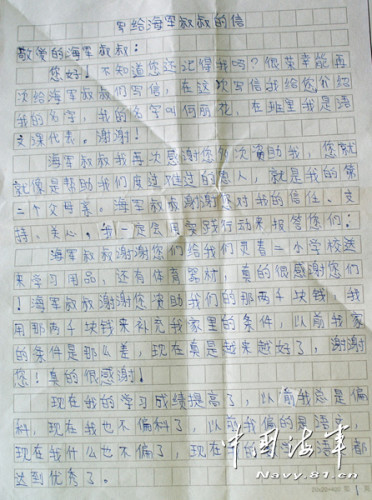 写给海军叔叔的信
敬爱的海军叔叔:
您好!不知道您还记得我吗?很荣幸能再
次给海军叔叔们写信,在这次写信我给您介绍
我的名字,我的名字叫何丽花,在班里我是语
文课代表。谢谢!
海军叔叔我再次感谢您多次资助我,您就
就像是帮助我们度过难过的恩人,就是我的第
二个父母亲。海军叔叔谢谢您对我的信任、支
持、关心。我一定会用实践行动来报答您们:
海军叔叔谢谢您们给我们贡普二小学校送
来学习用品,还有体育器材,真的很感谢您们
!海军叔叔谢谢您资助我们的那两千块钱,我
用那两千块钱来补充我家里的条件,以前我家
的条件是那么差,现在真是越来越好了,谢谢
您!真的很感谢!
现在我的学习成绩提高了,以前我总是偏
科,现在我也不偏科了,以前我偏的是语文,
现在我什么也不偏了,现在的语都
达到优秀了。
中国海军
Navy.81.cn
1